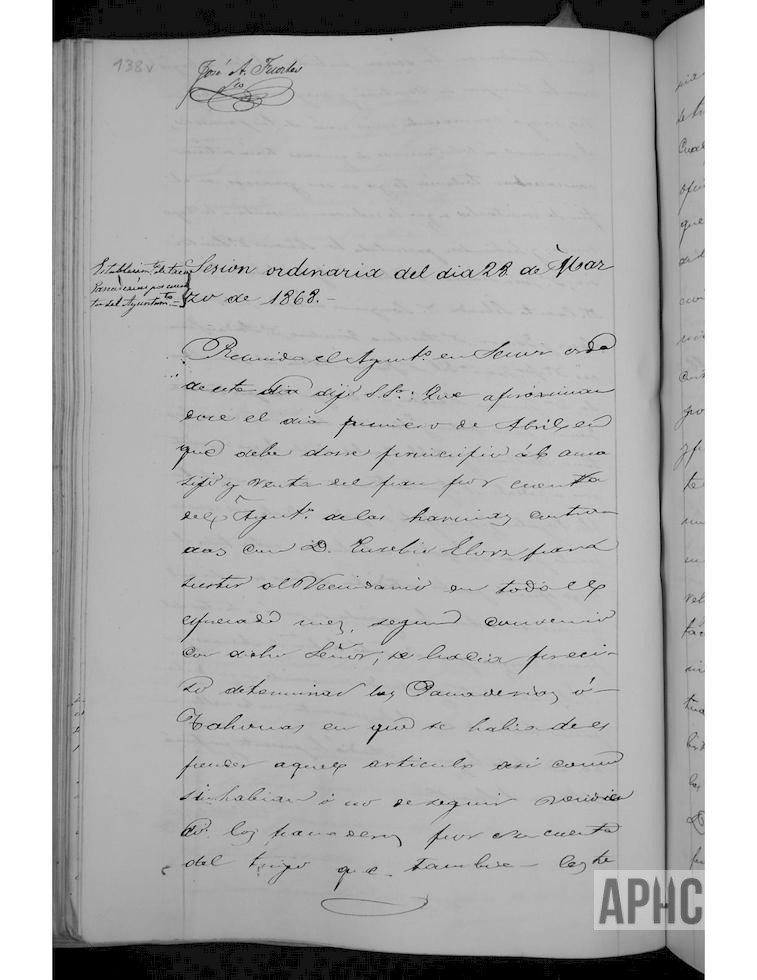 138v
José A. Fuertes
Srio
Establecimto. de trece
Panaderias por cuen
ta del Ayuntamto.
Sesion ordinaria del dia 28 de Mar
zo de 1868.-
Reunido el Ayunto. en Sesion orda
de este dia dijo S. Sa.: Que aproximan
dose el dia primero de Abril en
que debe darse principio al ama
sijo y venta del pan por cuenta
del Ayunto. de las harinas contrata
das con D. Eusebio Elorz para
surtir al Vecindario en todo el
espresado mes, segun convenio
con dicho Señor, se hacia preci-
so determinar las Panaderias ó
Tahonas en que se habia de es
pender aquel articulo asi como
si habian ó no de seguir
los panaderos por su cuenta
del trigo que tambien
APHC